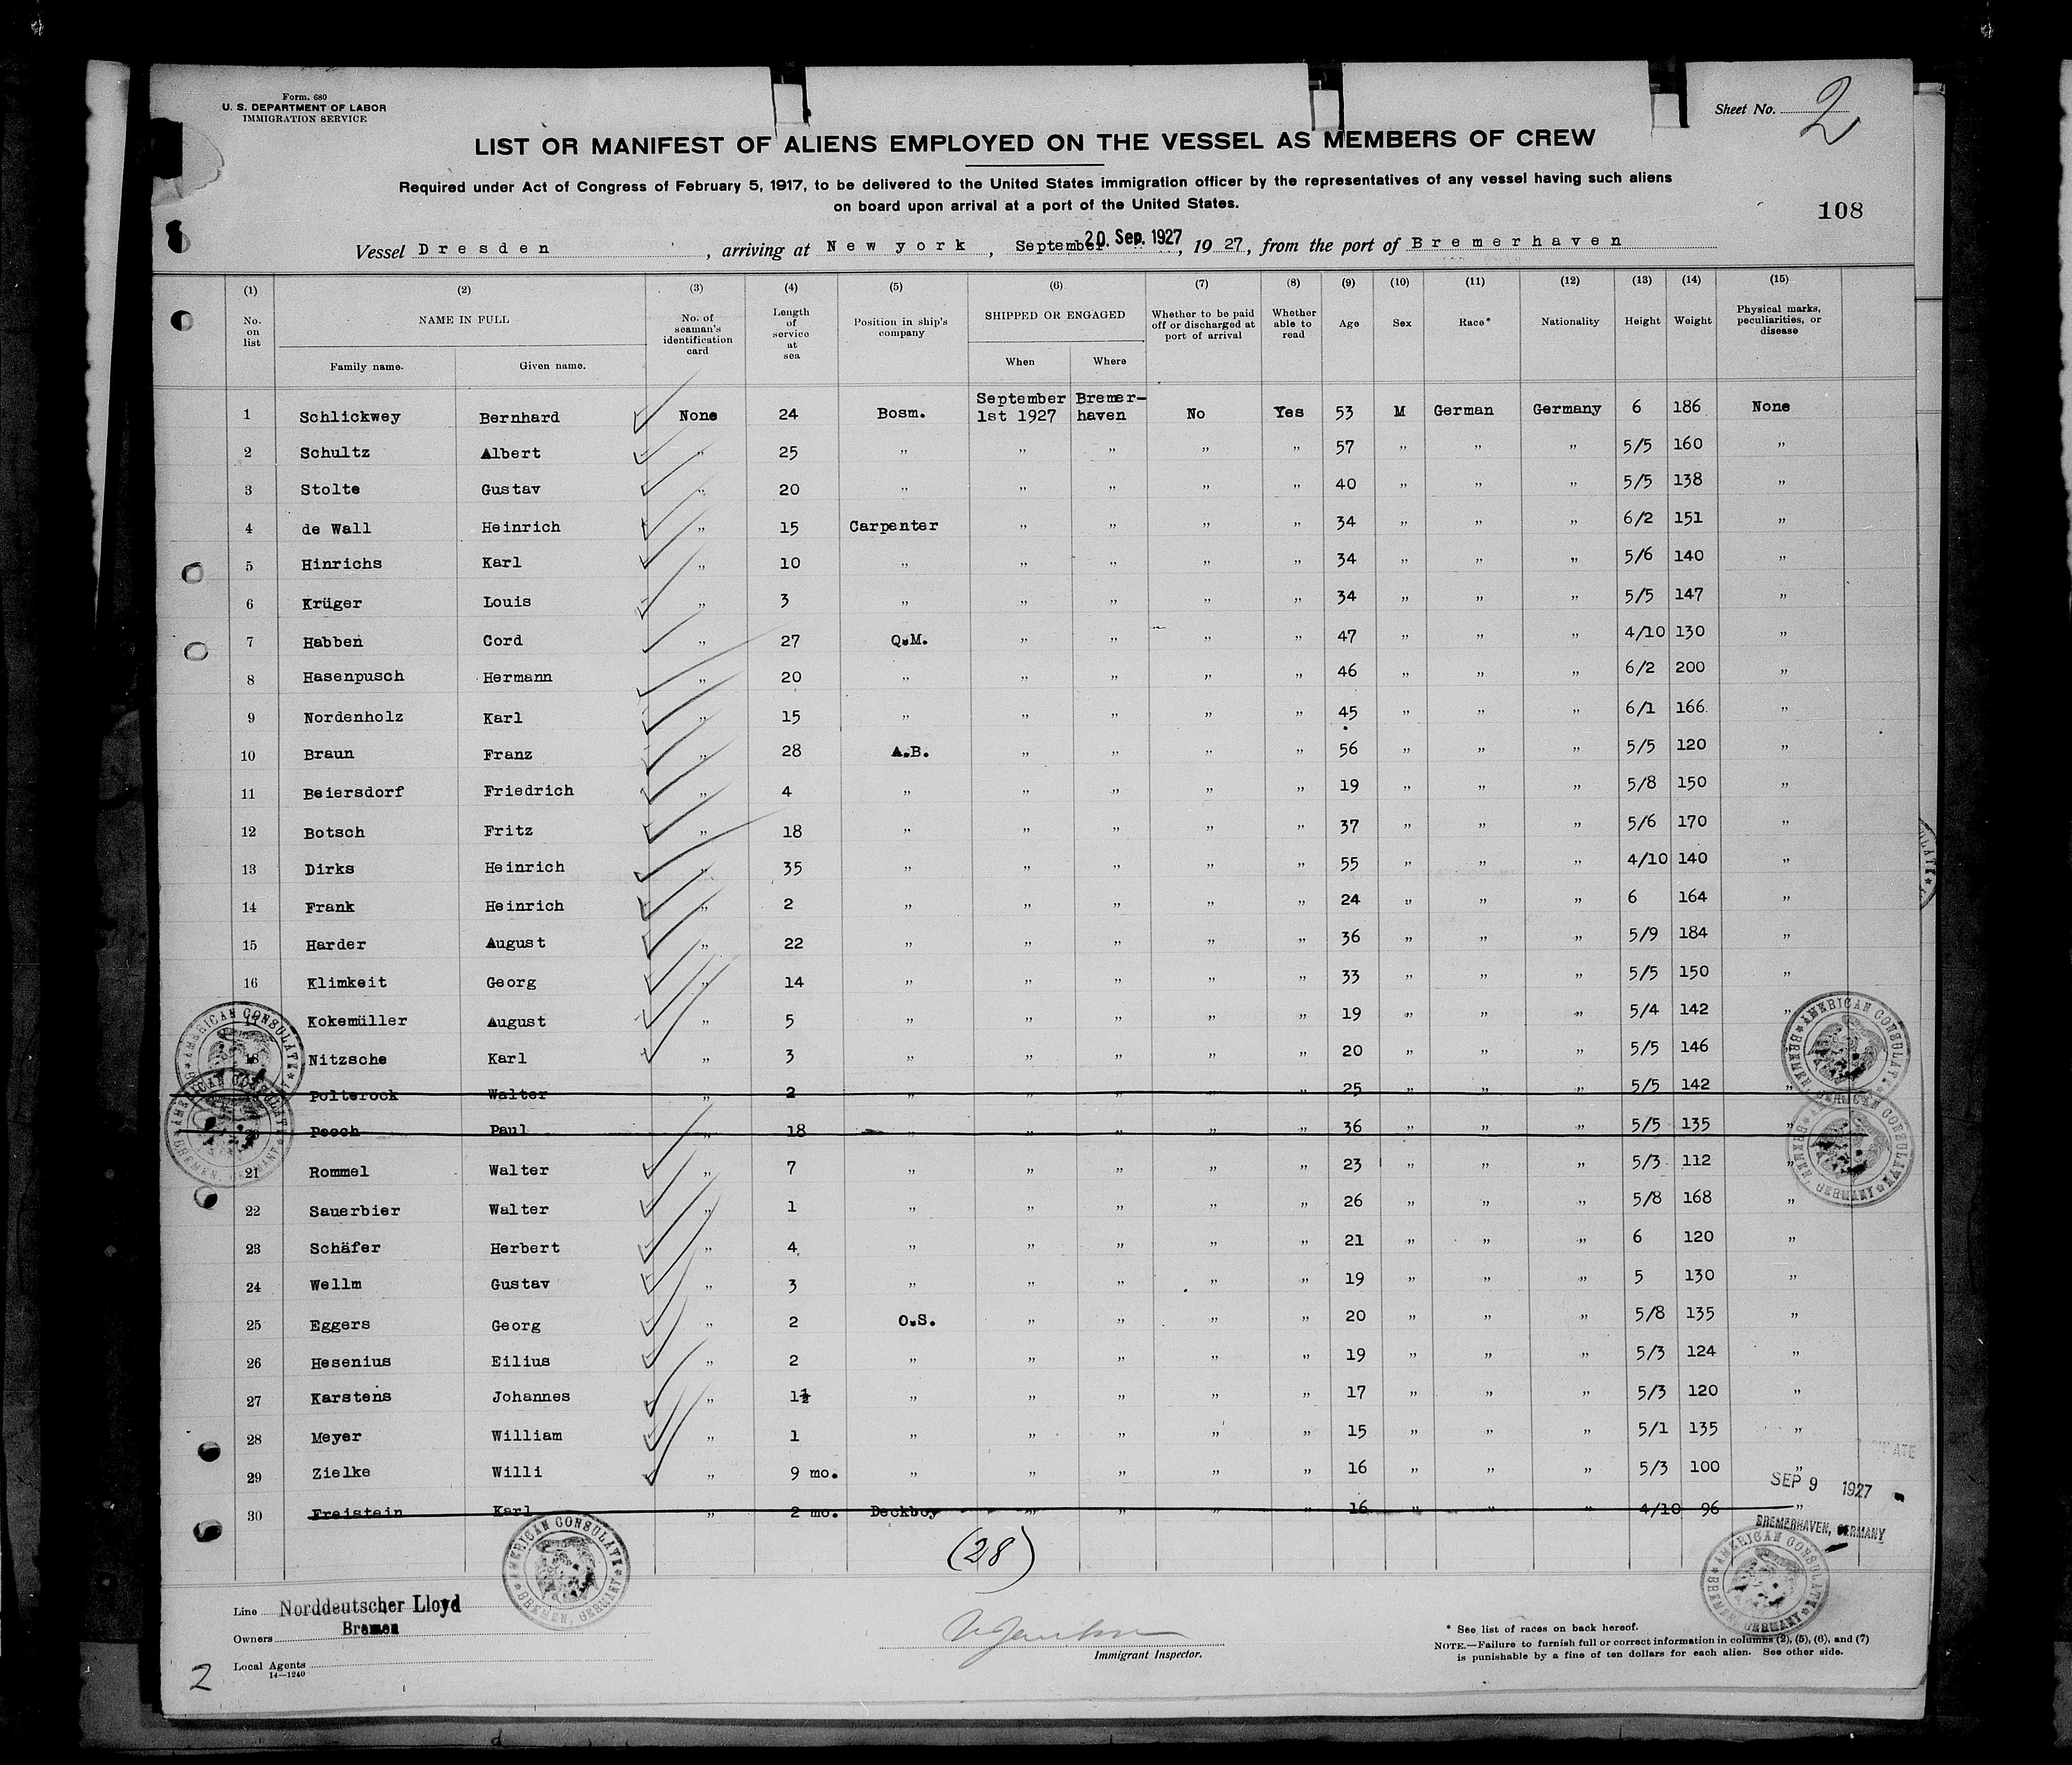 Form. 680
U. S. DEPARTMENT OF LABOR
IMMIGRATION SERVICE
Sheet No. 2
LIST OR MANIFEST OF ALIENS EMPLOYED ON THE VESSEL AS MEMBERS OF CREW
Required under Act of Congress of February 5, 1917, to be delivered to the United States immigration officer by the representatives of any vessel having such aliens
on board upon arrival at a port of the United States.
108
Vessel Dresden, arriving at New york, September 20. Sep. 1927, 1927, from the port of Bremerhaven
(1) (2) (3) (4) (5) (6) (7) (8) (9) (10) (11) (12) (13) (14) (15)
No. on list NAME IN FULL Family name. Given name. No. of seaman's identification card Length of service at sea Position in ship's company SHIPPED OR ENGAGED When Where Whether to be paid off or discharged at port of arrival Whether able to read Age Sex Race* Nationality Height Weight Physical marks, peculiarities, or disease
1 Schlickwey Bernhard None 24 Bosm. September 1st 1927 Bremer-haven No Yes 53 M German Germany 6 186 None
2 Schultz Albert " 25 " " " " " 57 " " " 5/5 160 "
3 Stolte Gustav " 20 " " " " " 40 " " " 5/5 138 "
4 de Wall Heinrich " 15 Carpenter " " " " 34 " " " 6/2 151 "
5 Hinrichs Karl " 10 " " " " " 34 " " " 5/6 140 "
6 Krüger Louis " 3 " " " " " 34 " " " 5/5 147 "
7 Habben Cord " 27 Q.M. " " " " 47 " " " 4/10 130 "
8 Hasenpusch Hermann " 20 " " " " " 46 " " " 6/2 200 "
9 Nordenholz Karl " 15 " " " " " 45 " " " 6/1 166 "
10 Braun Franz " 28 A.B. " " " " 56 " " " 5/5 120 "
11 Beiersdorf Friedrich " 4 " " " " " 19 " " " 5/8 150 "
12 Botsch Fritz " 18 " " " " " 37 " " " 5/6 170 "
13 Dirks Heinrich " 35 " " " " " 55 " " " 4/10 140 "
14 Frank Heinrich " 2 " " " " " 24 " " " 6 164 "
15 Harder August " 22 " " " " " 36 " " " 5/9 184 "
16 Klimkeit Georg " 14 " " " " " 33 " " " 5/5 150 "
17 Kokemüller August " 5 " " " " " 19 " " " 5/4 142 "
18 Nitzsche Karl " 3 " " " " " 20 " " " 5/5 146 "
Polterock Walter " 2 " " " " " 25 " " " 5/5 142 "
Pooch Paul " 18 " " " " " 36 " " " 5/5 135 "
21 Rommel Walter " 7 " " " " " 23 " " " 5/3 112 "
22 Sauerbier Walter " 1 " " " " " 26 " " " 5/8 168 "
23 Schäfer Herbert " 4 " " " " " 21 " " " 6 120 "
24 Wellm Gustav " 3 " " " " " 19 " " " 5 130 "
25 Eggers Georg " 2 O.S. " " " " 20 " " " 5/8 135 "
26 Hesenius Eilius " 2 " " " " " 19 " " " 5/3 124 "
27 Karstens Johannes " 1½ " " " " " 17 " " " 5/3 120 "
28 Meyer William " 1 " " " " " 15 " " " 5/1 135 "
29 Zielke Willi " 9 mo. " " " " " 16 " " " 5/3 100 "
30 Freistein Karl " 2 mo. Deckboy " " " " 16 " " " 4/10 96 "
AMERICAN CONSULATE BREMEN, GERMANY
AMERICAN CONSULATE BREMEN, GERMANY
AMERICAN CONSULATE BREMEN, GERMANY
AMERICAN CONSULATE BREMEN, GERMANY
SEP 9 1927
BREMERHAVEN, GERMANY
AMERICAN CONSULATE BREMEN, GERMANY
AMERICAN CONSULATE BREMEN, GERMANY
(28)
Line Norddeutscher Lloyd
Bremen
Owners
Local Agents
14—1240
2
Immigrant Inspector.
* See list of races on back hereof.
NOTE.—Failure to furnish full or correct information in columns (2), (5), (6), and (7)
is punishable by a fine of ten dollars for each alien. See other side.